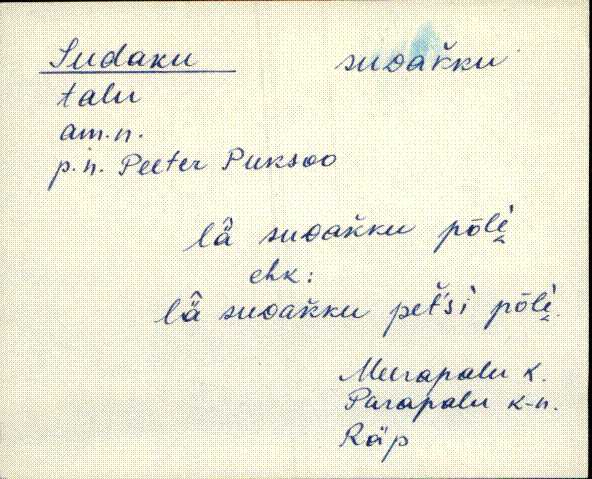 Sudaku suᴅak̆ku
talu
am.n.
p.n. Peeter Puksoo
lä̂ suᴅak̆ku pōli̮
ehk:
lä̂ suᴅak̆ku pet̆śi pōli̮.
Meerapalu k.
Parapalu k-n.
Räp